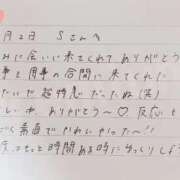 月2日 Sさんへ
みに会いに来てくれてありがとう
事と用事の合間に来てくれた
たいな超特急だったね(笑)
しいよ、ありがとう〜♡ 反応も
ごく素直でかわいかった〜!!
次はもっと時間ある時にゆっくりしよう